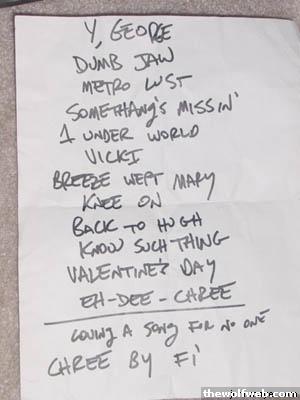 Y, GEORGE
DUMB JAW
METRO LUST
SOMETHANG'S MISSIN'
1 UNDER WORLD
VICKI
BREEZE WEPT MARY
KNEE ON
BACK TO HUGH
KNOW SUCH THING
VALENTINE'S DAY
EH-DEE-CHREE
LOVING A SONG FOR NO ONE
CHREE BY FI'
thewolfweb.com